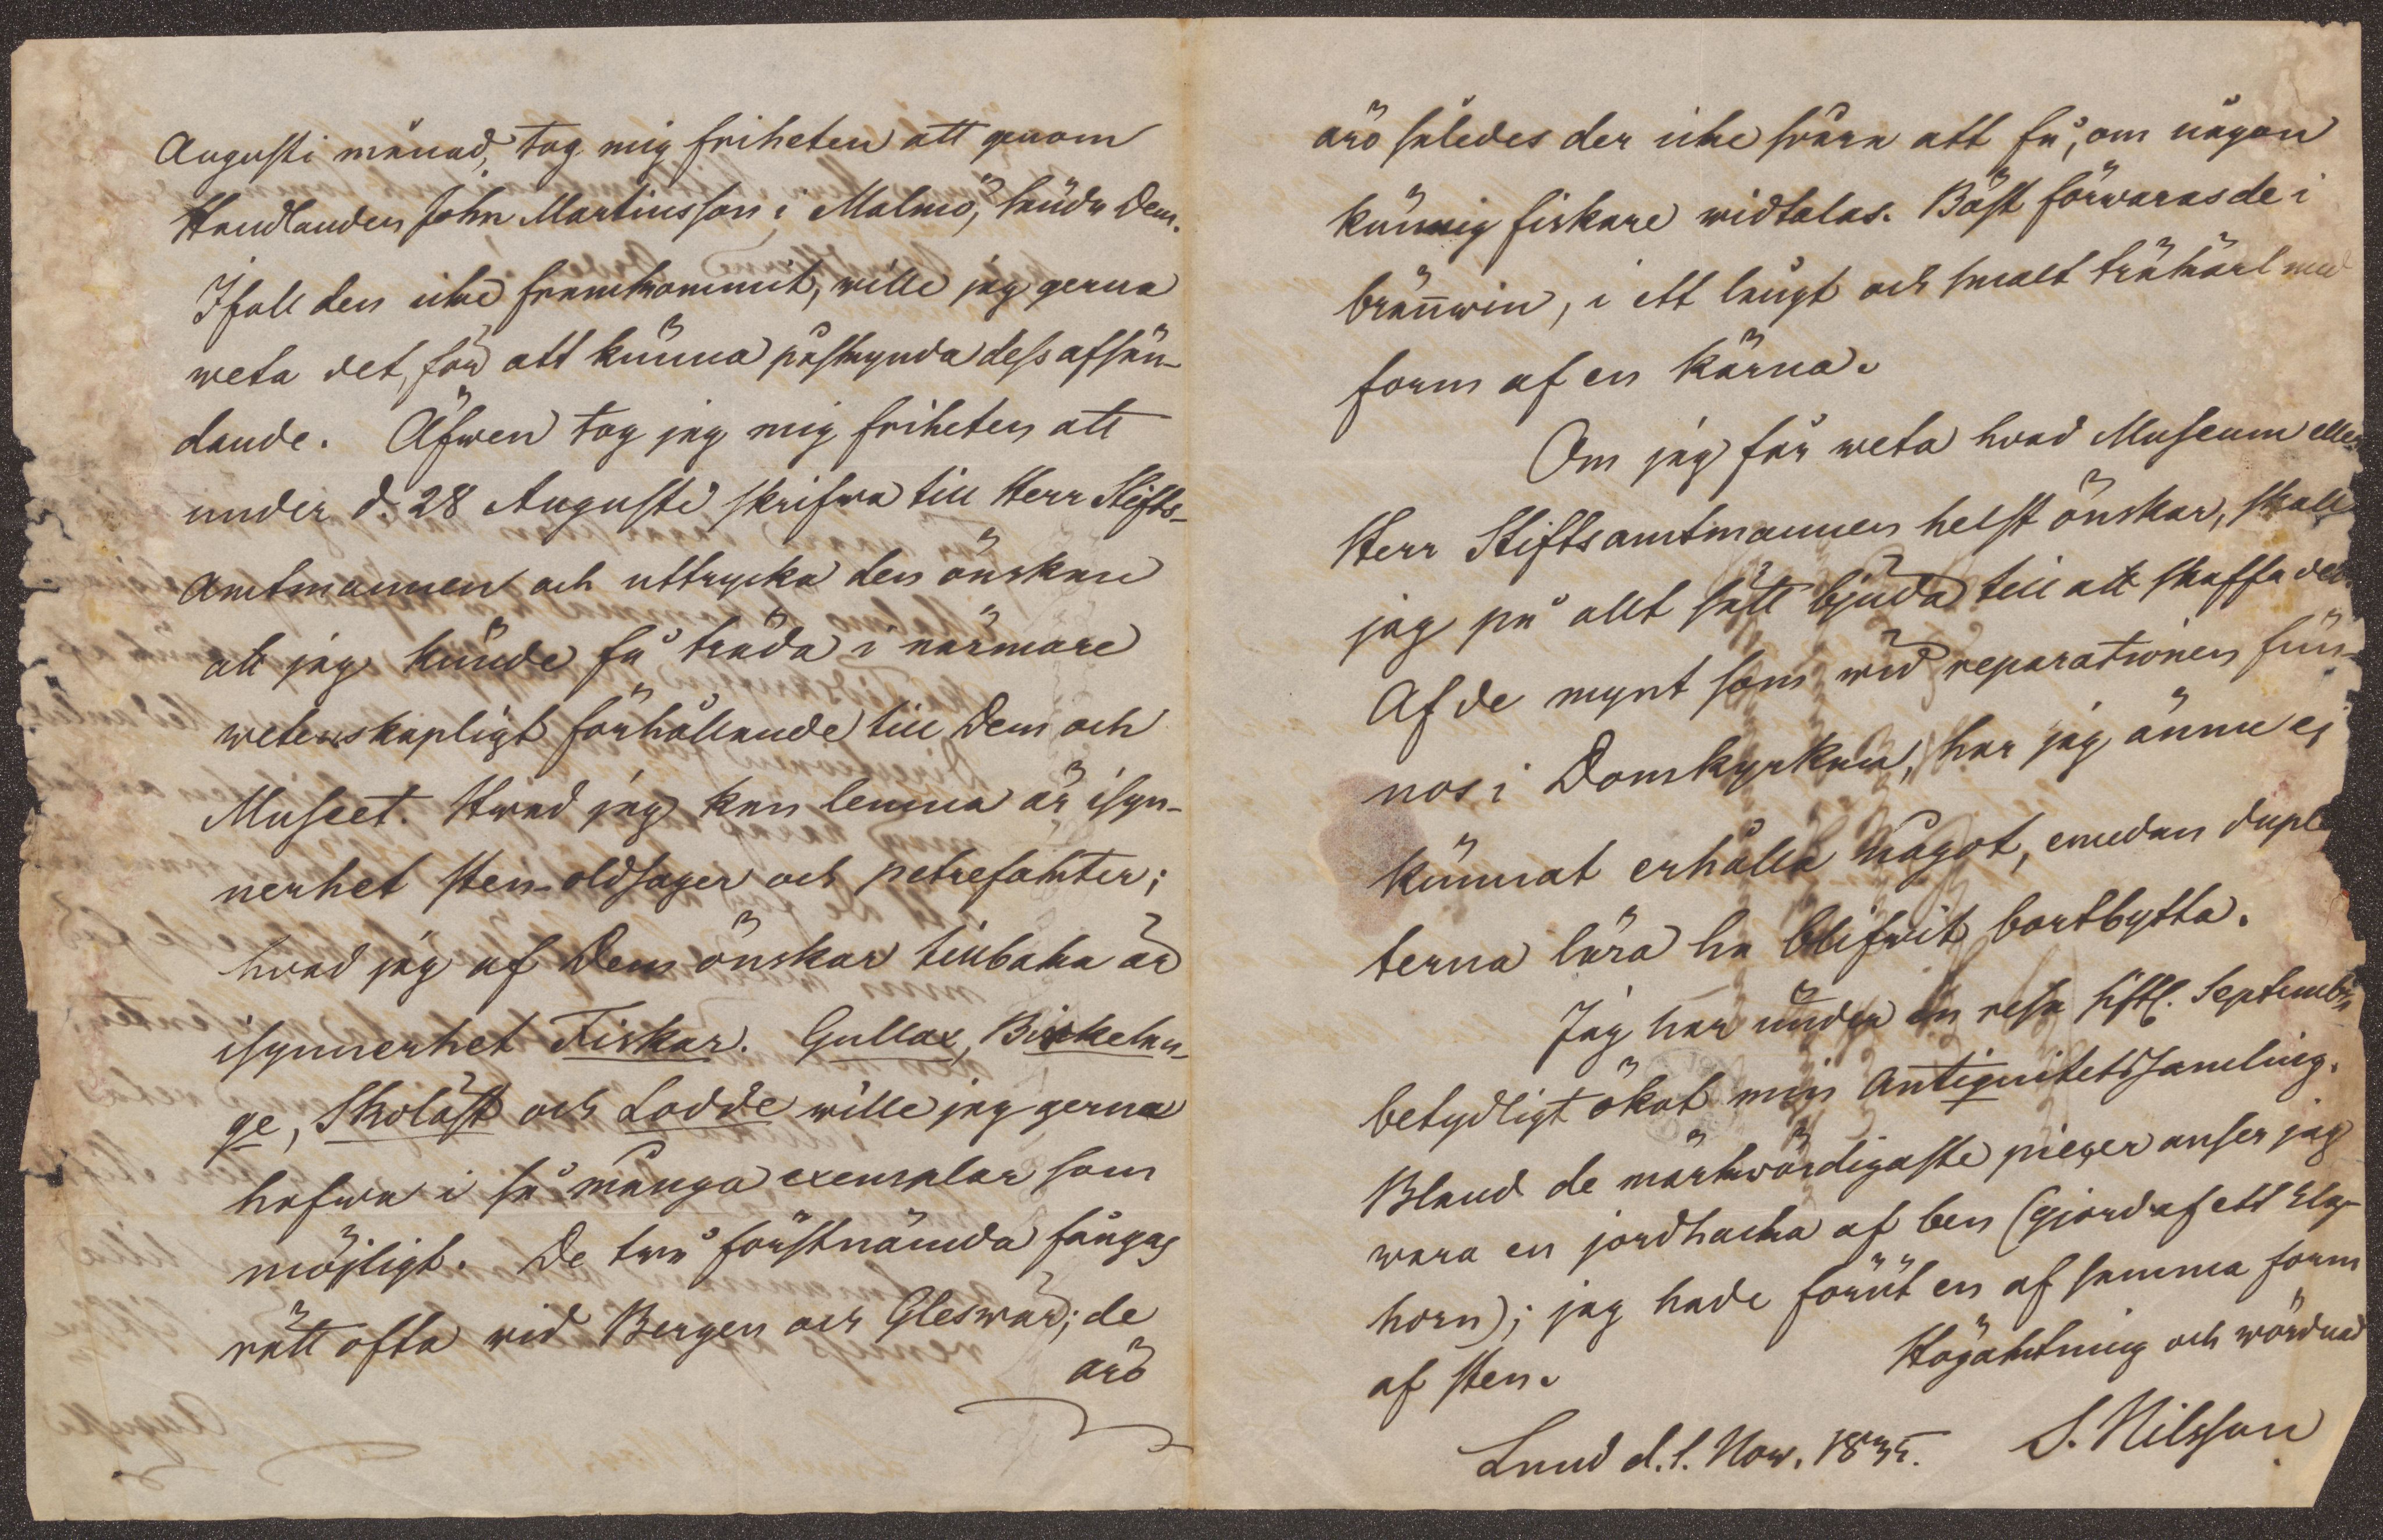 Augusti månad, tog mig friheten att genom
Handlanden John Martinsson i Malmö, sända Dem.
Ifall den icke framkommit, wille jag gerna
weta det, för att kunna påskynda dess afsän-
dande. Äfwen tog jag mig friheten att
under d. 28 Augusti skrifwa till Herr Stifts-
Amtmannen och uttrycka den önskan
att jag kunde få träda i närmare
wetenskapligt förhållande till Dem och
Museet. Hwad jag kan lemna är isyn-
nerhet sten-oldsager och petrefakter;
hvad jag af Dem önskar tillbaka är
isynnerhet Fiskar. Gullax, Birkelan-
ge, Skoläst och Lodde wille jag gerna
hafwa i så många exemplar som
möjligt. De twå förstnämda fångas
rätt ofta wid Bergen och Gleswær; de
äro
äro således der icke svåra att få, om någon
kunnig fiskare widtalas. Bäst förwaras de i
bränwin, i ett långt och smalt träkärl med
form af en kärna.
Om jag får weta hvad Museum eller
Herr Stiftsamtmannen helst önskar, skall
jag på allt sätt bjuda till att skaffa det.
Af de mynt som wid reparationen fun-
nos i Domkyrkan, har jag ännu ej
kunnat erhålla något, emedan duple
terna lära ha blifwit bortbytta.
Jag har under en resa sistl. September
betydligt ökat min Antiquitetssamling.
Bland de märkwärdigaste pieçer anser jag
wara en jordhacka af ben (gjord af ett Elg-
horn); jag hade förut en af samma form
af sten.
Högaktning och wördnad
Lund d. 1. Nov. 1835.
S. Nilsson